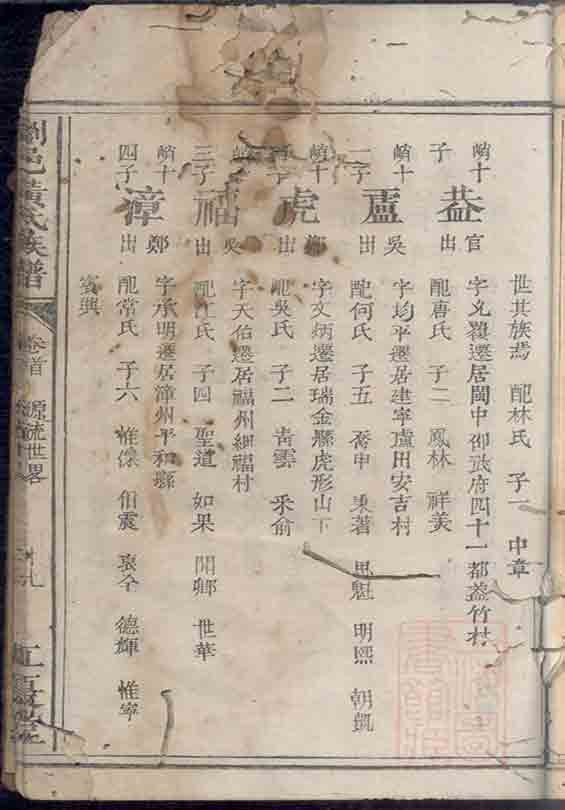 世其族焉 配林氏 子一 中章
峭十子 益 官出 字文羅遷居閩中邵武府四十一都益竹村
配唐氏 子二 鳳林 祥美
峭十二子 盧 吳出 字均平遷居建寧盧田安吉村
配何氏 子五 喬申 東著 思魁 明熙 朝凱
峭十 虎 鄭出 字文炳遷居瑞金縣虎形山下
配吳氏 子二 青雲 采俞
三子 福 吳出 字天佑遷居福州細福村
配江氏 子四 聖道 如果 開鄉 世華
峭十四子 漳 鄭出 字承明遷居漳州平和縣
配常氏 子六 惟傑 伯震 衷全 德輝 惟寧
賓興
瀏邑黃氏族譜 卷首 源流世畧 江夏堂